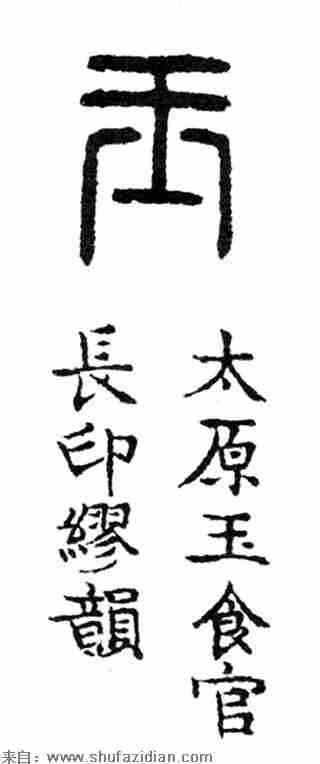 玉
太原玉食官
長印繆韻
来自：www.shufazidian.com